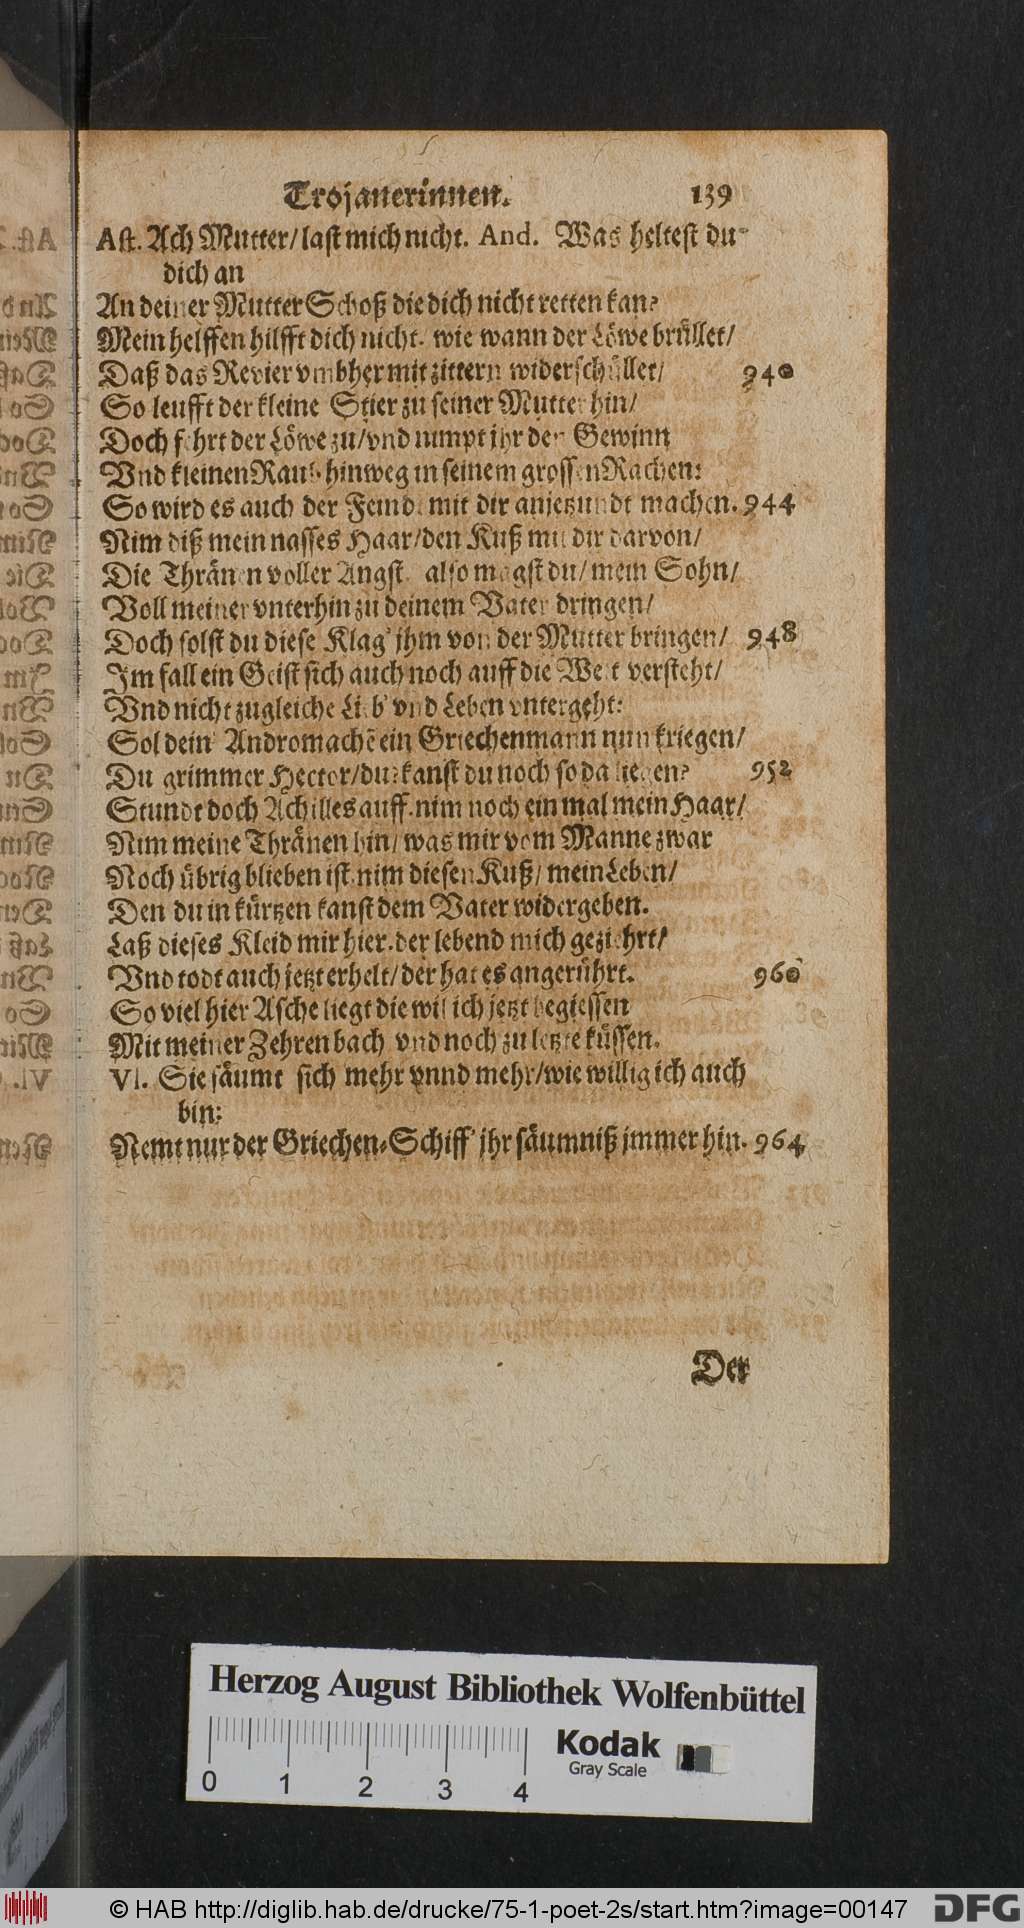 Trojanerinnen. 139
Ast. Ach Mutter/ last mich nicht. And. Was heltest du
dich an
An deiner Mutter Schoß die dich nicht retten kan?
Mein helffen hilfft dich nicht. wie wann der Löwe brüllet/
Daß das Revier vmbher mit zittern widerschüllet/ 940
So leufft der kleine Stier zu seiner Mutter hin/
Doch fehrt der Löwe zu/ vnd nimpt jhr den Gewinn
Vnd kleinen Raub hinweg in seinem grossen Rachen:
So wird es auch der Feind mit dir anjetzundt machen. 944
Nim diß mein nasses Haar/ den Kuß mit dir darvon/
Die Thränen voller Angst. also magst du/ mein Sohn/
Voll meiner vnterhin zu deinem Vater dringen/
Doch solst du diese Klag' jhm von der Mutter bringen/ 948
Im fall ein Geist sich auch noch auff die Welt versteht/
Vnd nicht zugleiche Lieb' vnd Leben vntergeht:
Sol dein' Andromachẽ ein Griechenmann nun kriegen/
Du grimmer Hector/ du? kanst du noch so da liegen? 952
Stundt doch Achilles auff. nim noch ein mal mein Haar/
Nim meine Thränen hin/ was mir vom Manne zwar
Noch übrig blieben ist. nim diesen Kuß/ mein Leben/
Den du in kürtzen kanst dem Vater widergeben.
Laß dieses Kleid mir hier. der lebend mich geziehrt/
Vnd todt auch jetzt erhelt/ der hat es angerührt. 960
So viel hier Asche liegt die wil ich jetzt begiessen
Mit meiner Zehren bach vnd noch zu letzte küssen.
Vl. Sie säumt sich mehr vnnd mehr/ wie willig ich auch
bin:
Nemt nur der Griechen-Schiff' jhr säumniß jmmer hin. 964
Der
Herzog August Bibliothek Wolfenbüttel
Kodak
Gray Scale
0 1 2 3 4
© HAB http://diglib.hab.de/drucke/75-1-poet-2s/start.htm?image=00147
DFG